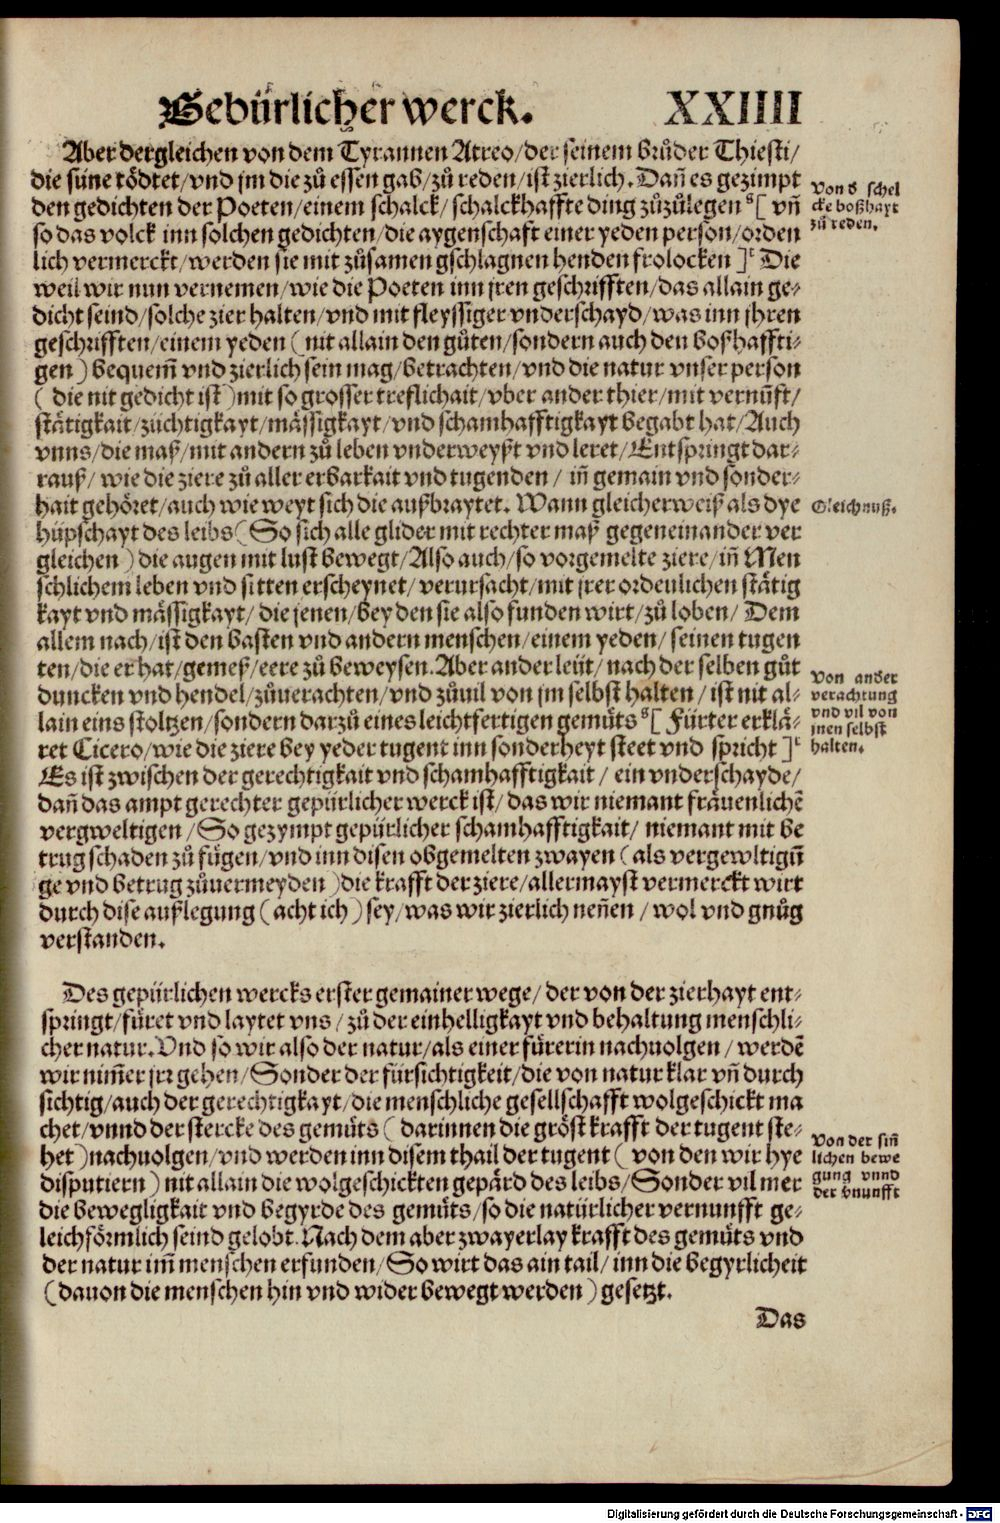 Gebürlicher werck. XXIIII
Aber dergleichen von dem Tyrannen Atreo/der seinem brůder Thiesti/
die süne tödtet/vnd jm die zů essen gab/zů reden/ist zierlich. Dañ es gezimpt
den gedichten der Poeten/einem schalck/schalckhaffte ding zůzůlegen [ vñ
so das volck inn solchen gedichten/die aygenschaft einer yeden person/orden
lich vermerckt/werden sie mit zůsamen gschlagnen henden frolocken ] Die
weil wir nun vernemen/wie die Poeten inn jren geschrifften/das allain ge-
dicht seind/solche zier halten/vnd mit fleyssiger vnderschayd/was inn jhren
geschrifften/einem yeden (nit allain den gůten/sondern auch den boßhaffti-
gen) bequem̃ vnd zierlich sein mag/betrachten/vnd die natur vnser person
( die nit gedicht ist )mit so grosser treflichait/vber ander thier/mit vernũft/
stätigkait/züchtigkayt/mässigkayt/vnd schamhafftigkayt begabt hat/Auch
vnns/die maß/mit andern zů leben vnderweyßt vnd leret/Entspringt dar-
rauß/ wie die ziere zů aller erbarkait vnd tugenden / iñ gemain vnd sonder-
hait gehöret/auch wie weyt sich die außbraytet. Wann gleicherweiß als dye
hüpschayt des leibs(So sich alle glider mit rechter maß gegeneinander ver
gleichen) die augen mit lust bewegt/Also auch/so vorgemelte ziere/iñ Men
schlichem leben vnd sitten erscheynet/verursacht/mit jrer ordenlichen stätig
kayt vnd mässigkayt/die jenen/bey den sie also funden wirt/zů loben/ Dem
allem nach/ist den basten vnd andern menschen/einem yeden/ seinen tugen
ten/die er hat/gemeß/eere zů beweysen. Aber ander leüt/nach der selben gůt
duncken vnd hendel/zůuerachten/vnd zůuil von jm selbst halten/ist nit al-
lain eins stoltzen/sondern darzů eines leichtfertigen gemůts [ Fürter erklä-
ret Cicero/wie die ziere bey yeder tugent inn sonderheyt steet vnd spricht ]
Es ist zwischen der gerechtigkait vnd schamhafftigkait / ein vnderschayde/
dañ das ampt gerechter gepürlicher werck ist/das wir niemant fräuenlichẽ
vergweltigen/So gezympt gepürlicher schamhafftigkait/ niemant mit be
trug schaden zů fügen/vnd inn disen obgemelten zwayen (als vergewltigũ
ge vnd betrug zůuermeyden )die krafft der ziere/allermayst vermerckt wirt
durch dise außlegung (acht ich) sey/was wir zierlich neñen / wol vnd gnůg
verstanden.
Des gepürlichen wercks erster gemainer wege/ der von der zierhayt ent-
springt/füret vnd laytet vns/zů der einhelligkayt vnd behaltung menschli-
cher natur. Vnd so wir also der natur/als einer fürerin nachuolgen/ werdẽ
wir nim̃er jrr gehen/Sonder der fürsichtigkeit/die von natur klar vñ durch
sichtig/auch der gerechtigkayt/die menschliche gesellschafft wolgeschickt ma
chet/vnnd der stercke des gemůts ( darinnen die gröst krafft der tugent ste-
het )nachuolgen/vnd werden inn disem thail der tugent ( von den wir hye
disputiern) nit allain die wolgeschickten gepärd des leibs/Sonder vil mer
die bewegligkait vnd begyrde des gemůts/so die natürlicher vernunfft ge-
leichförmlich seind gelobt. Nach dem aber zwayerlay krafft des gemůts vnd
der natur im̃ menschen erfunden/So wirt das ain tail/inn die begyrlicheit
(dauon die menschen hin vnd wider bewegt werden) gesetzt.
Das
schel
cke boßhayt
zů reden.
Gleichnuß.
Von ander
verachtung
vnd vil von
jnen selbst
halten.
Von der siñ
lichen bewe
gung vnnd
der vnunfft
Digitalisierung gefördert durch die Deutsche Forschungsgemeinschaft - DFG